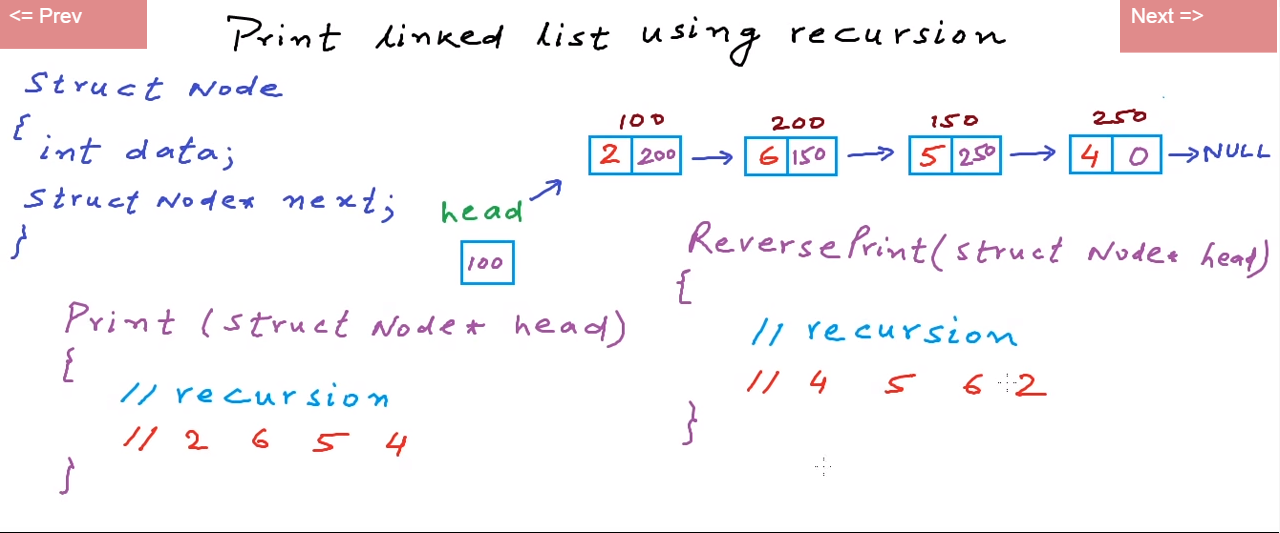 <= Prev
Next =>
Print linked list using recursion
Struct Node
{
int data;
Struct Node* next;
}
head
100
100 200 150 250
2 200 → 6 150 → 5 250 → 4 0 → NULL
Print (struct Node* head)
{
// recursion
// 2 6 5 4
}
ReversePrint(struct Node* head)
{
// recursion
// 4 5 6 2
}